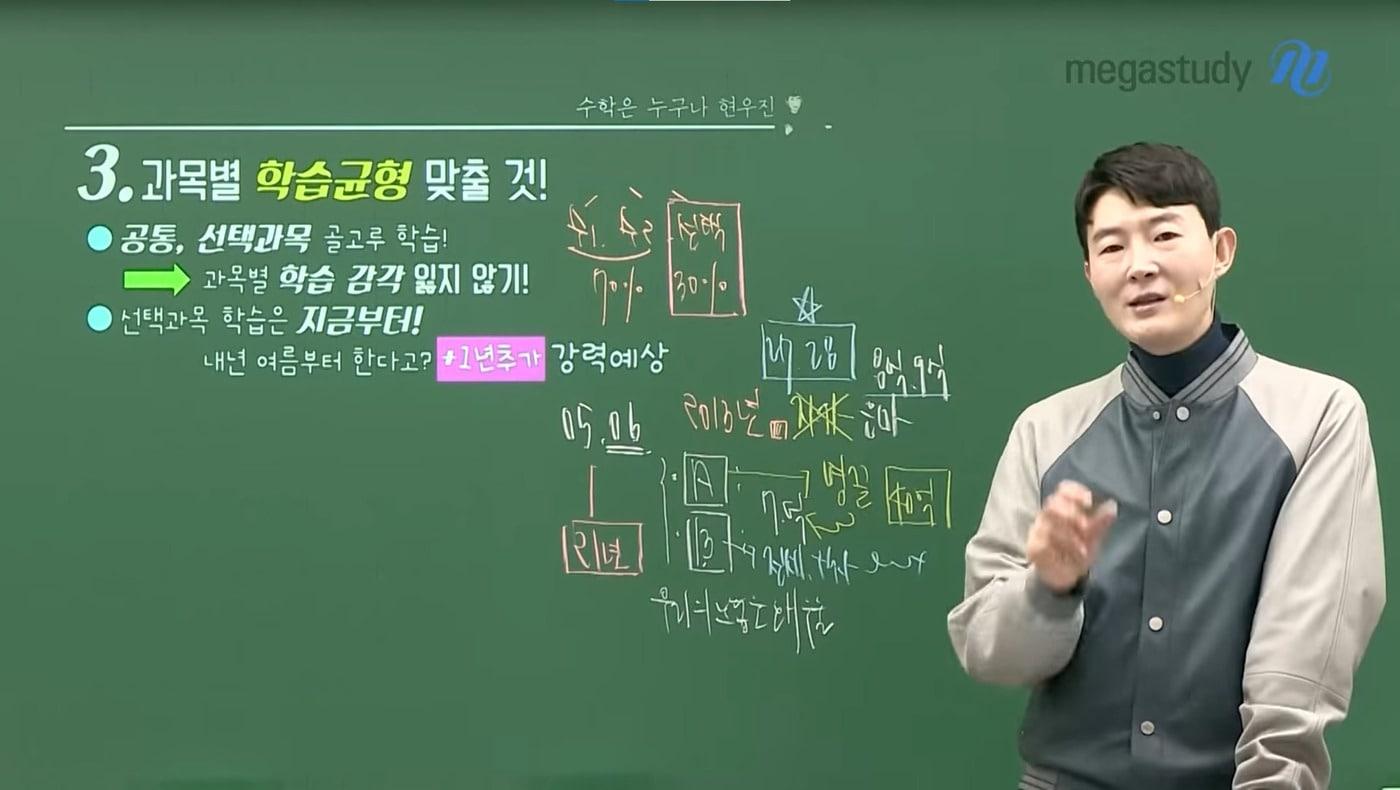 megastudy
수학은 누구나 현우진
3. 과목별 학습균형 맞출 것!
공통, 선택과목 골고루 학습!
과목별 학습 감각 잃지 않기!
선택과목 학습은 지금부터!
내년 여름부터 한다고? +1년추가 강력예상
수1. 수2 선택
70% 30%
27. 28
05. 06
2013년
은마
A
7억
40억
B
21년